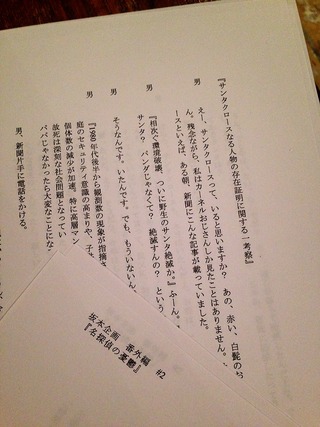 『サンタクロースなる人物の存在証明に関する一考察』
男
えー、サンタクロースって、いると思いますか? あの、赤い、白髭のお
ん。残念ながら、私はカーネルおじさんしか見たことはありません。
ースといえば、ある朝、新聞にこんな記事が載っていました。
『相次ぐ環境破壊、ついに野生のサンタ絶滅か。』ふーん。
男
サンタ? パンダじゃなくて? 絶滅すんの? という
男
そうなんです。いたんです。でも、もういないん
男
『1980年代後半から観測数の現象が指摘さ
庭のセキュリティ意識の高まりや、子
個体数の減少が加速。特に高層マン
故死は深刻な社会問題となってい
パパじゃなかったら大変なことにな
男、新聞片手に電話をかける。
坂本企画 番外編 #2
『名探偵の憂鬱』